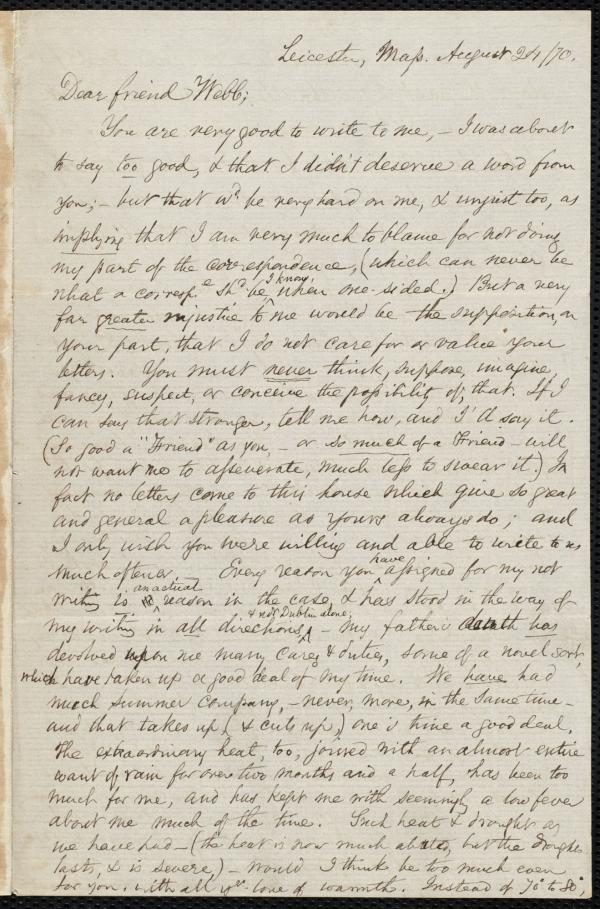 Leicester, Mass. August 24/70.
Dear friend Webb;
You are very good to write to me, – I was about
to say too good, & that I didn't deserve a word from
you; – but that wd. be very hard on me, & unjust too, as
implying that I am very much to blame for not doing
my part of the correspondence, (which can never be
what a corresp.e shd. be, I know, when one-sided.) But a very
far greater injustice to me would be the supposition, on
your part, that I do not care for or value your
letters. You must never think, suppose, imagine,
fancy, suspect, or conceive the possibility of, that. If I
can say that stronger, tell me how, and I'll say it.
(So good a "Friend" as you, – or so much of a Friend – will
not want me to asseverate, much less to swear it.) In
fact no letters come to this house which give so great
and general a pleasure as yours always do; and
I only wish you were willing and able to write to us
much oftener. Every reason you have assigned for my not
writing is an actual reason in the case, & has stood in the way of
my writing in all directions, & not Dublin alone; – my father's death has
devolved upon me many cares & duties, some of a novel sort,
which have taken up a good deal of my time. We have had
much summer company, – never, more, in the same time –
and that takes up, (& cuts up,) one's time a good deal.
The extraordinary heat, too, joined with an almost entire
want of rain for over two months and a half, has been too
much for me, and has kept me with seemingly a low fever
about me much of the time. Such heat & drought as
we have had – (the heat is now much abated, but the drought
lasts, & is severe,) – would I think be too much even
for you, with all yr. love of warmth. Instead of 70° to 80°,